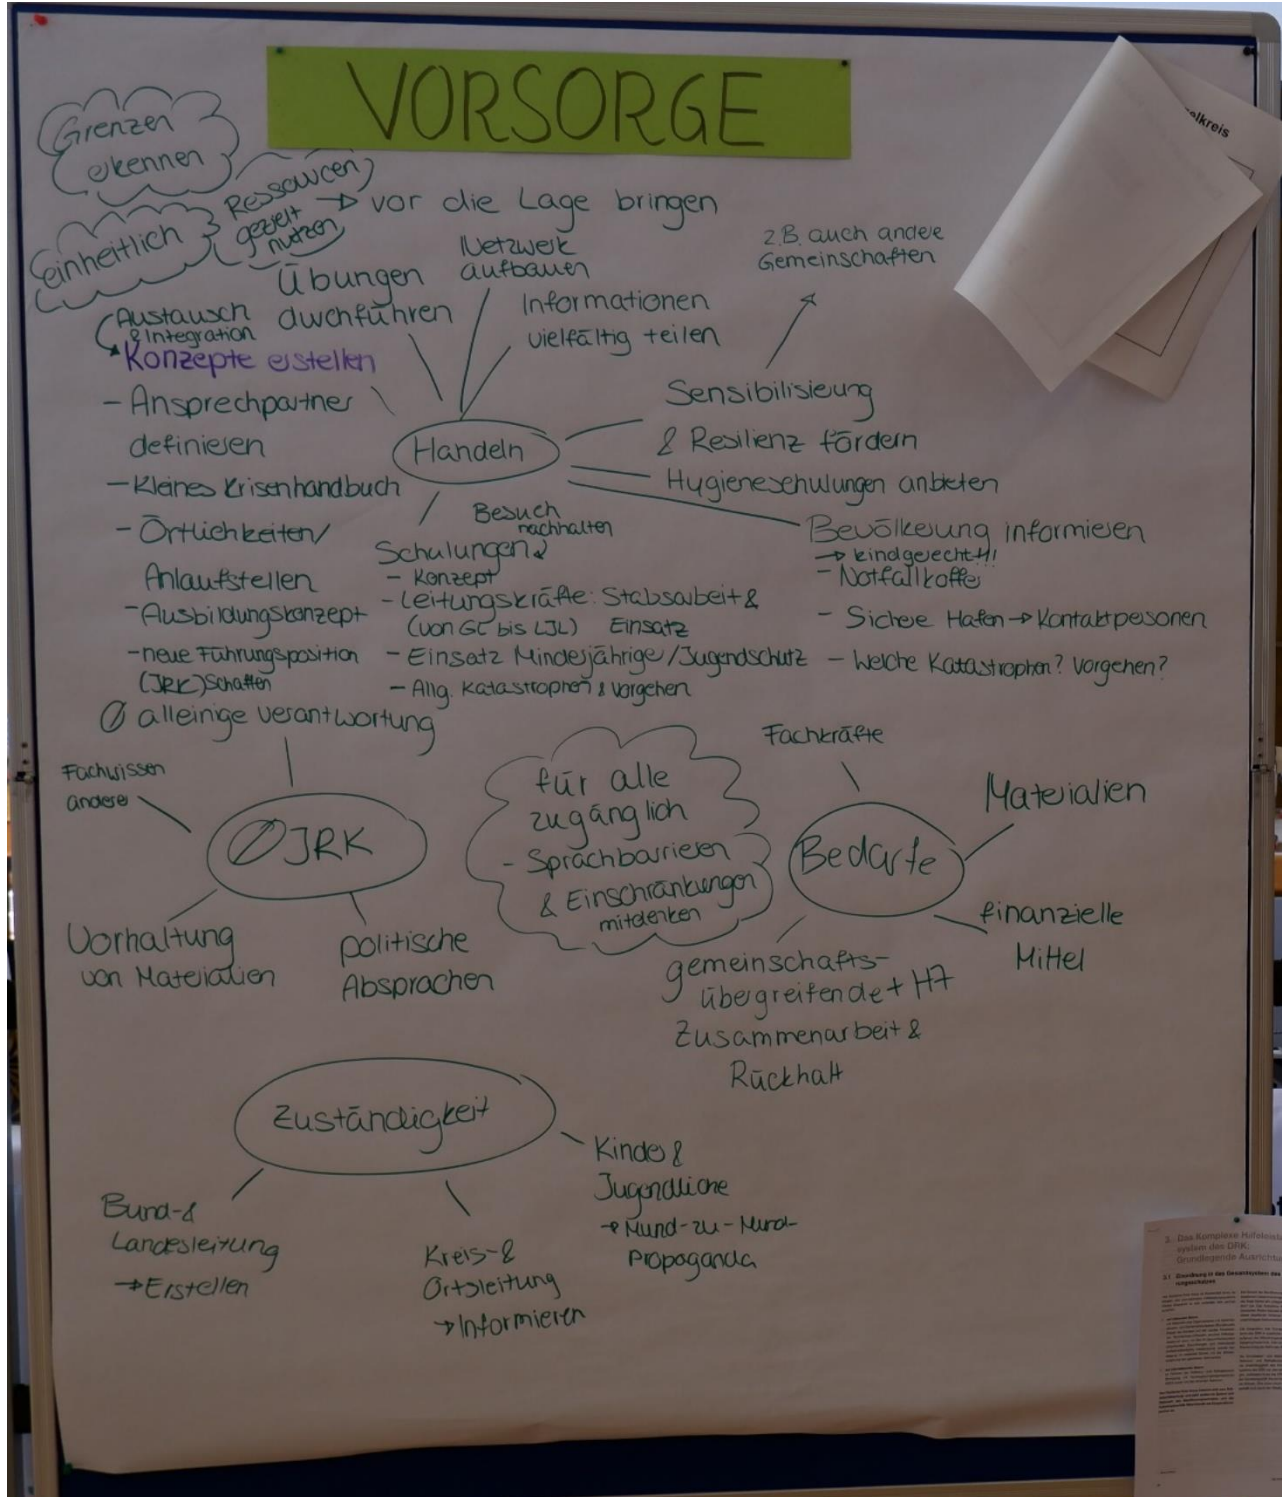 VORSORGE
Grenzen
erkennen
Ressourcen
gezielt
nutzen
einheitlich
→ vor die Lage bringen
Übungen
durchführen
Netzwerk
aufbauen
Informationen
vielfältig teilen
z.B. auch andere
Gemeinschaften
Austausch
& Integration
Konzepte erstellen
- Ansprechpartner
definieren
- Kleines Krisenhandbuch
- Örtlichkeiten/
Anlaufstellen
- Ausbildungskonzept
- neue Führungsposition
(JRK) schaffen
Handeln
Sensibilisierung
& Resilienz fördern
Hygieneschulungen anbieten
Bevölkerung informieren
→ kindgerecht!!!
- Notfallkoffer
- Sichere Häfen → Kontaktpersonen
- Welche Katastrophen? Vorgehen?
Besuch
nachhalten
Schulungen
- Konzept
- Leitungskräfte: Stabsarbeit &
(von GL bis LJL) Einsatz
- Einsatz Minderjährige/Jugendschutz
- Allg. Katastrophen & Vorgehen
Ø alleinige Verantwortung
Fachwissen
anderer
Ø JRK
Vorhaltung
von Materialien
politische
Absprachen
für alle
zugänglich
- Sprachbarrieren
& Einschränkungen
mitdenken
Fachkräfte
Bedarfe
Materialien
finanzielle
Mittel
gemeinschafts-
übergreifende + HA
Zusammenarbeit &
Rückhalt
Zuständigkeit
Bund- &
Landesleitung
→ Erstellen
Kreis- &
Ortsleitung
→ Informieren
Kinder &
Jugendliche
→ Mund-zu-Mund-
Propaganda
elkreis
3. Das Komplexe Hilfeleist
system des DRK:
Grundlegende Ausrichtu